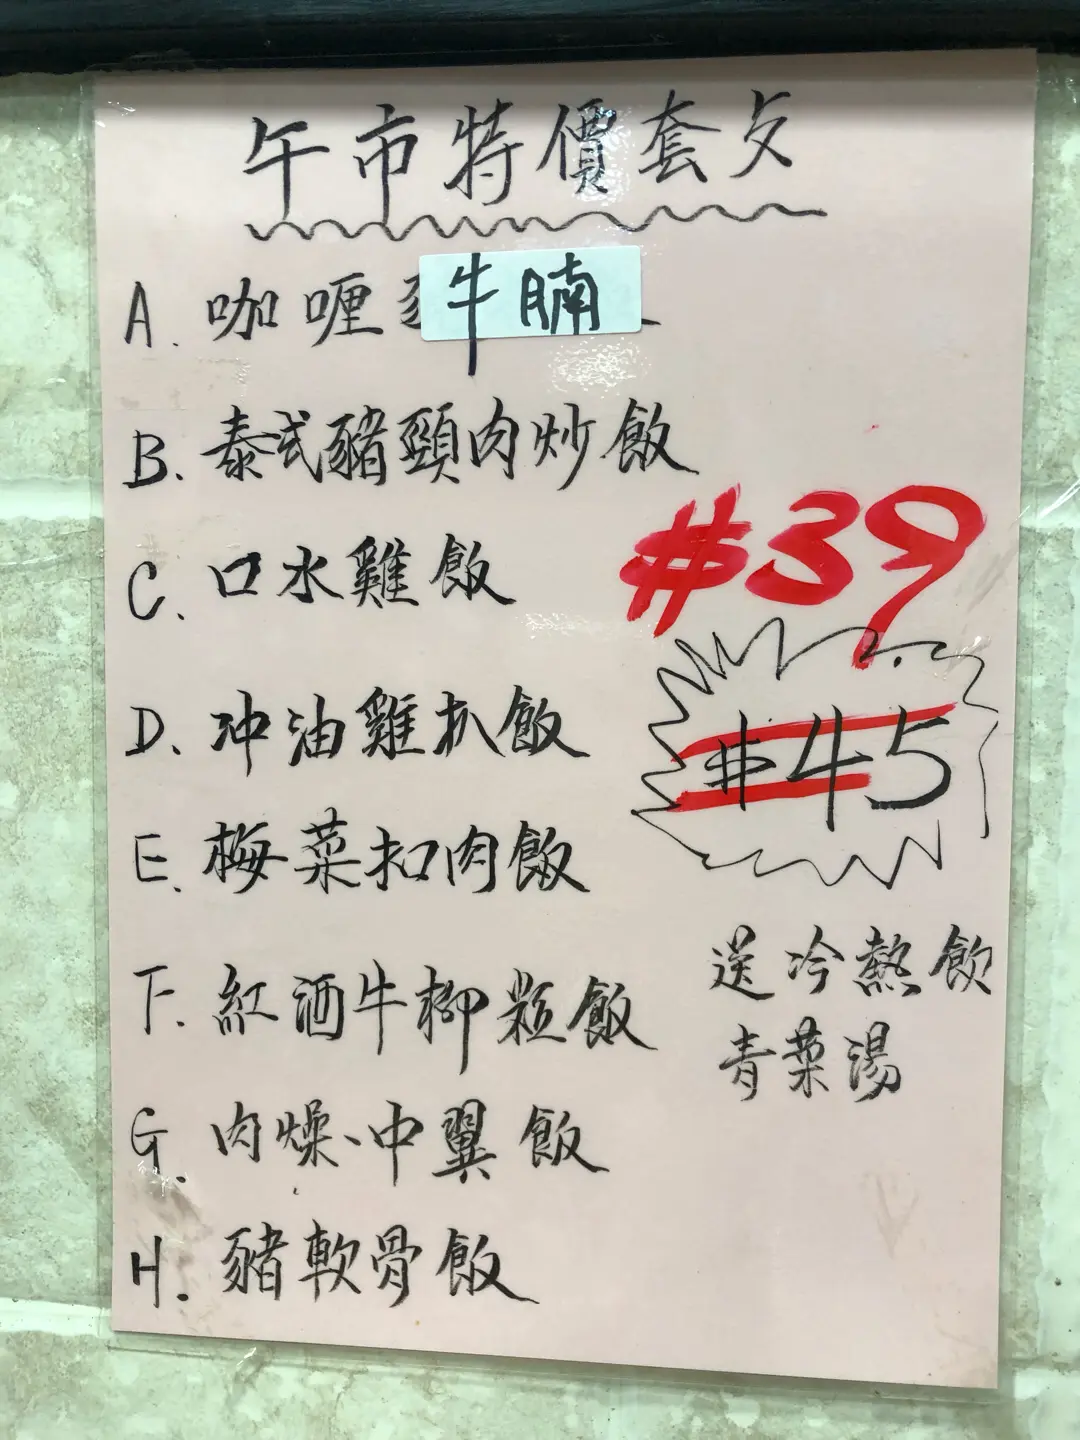 午市特價套攵
A. 咖喱牛腩
B. 泰式豬頸肉炒飯
C. 口水雞飯
D. 沖油雞扒飯
E. 梅菜扣肉飯
F. 紅酒牛柳粒飯
G. 肉燥、中翼飯
H. 豬軟骨飯
$39
$45
送冷熱飲
青菜湯